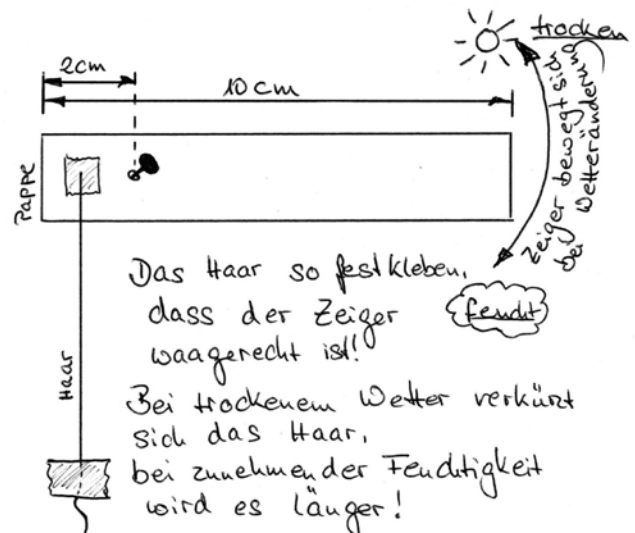 trocken
2cm
10 cm
Zeiger bewegt sich
bei Wetteränderung
Pappe
Das Haar so festkleben,
dass der Zeiger
waagerecht ist!
feucht
Haar
Bei trockenem Wetter verkürzt
sich das Haar,
bei zunehmender Feuchtigkeit
wird es länger!